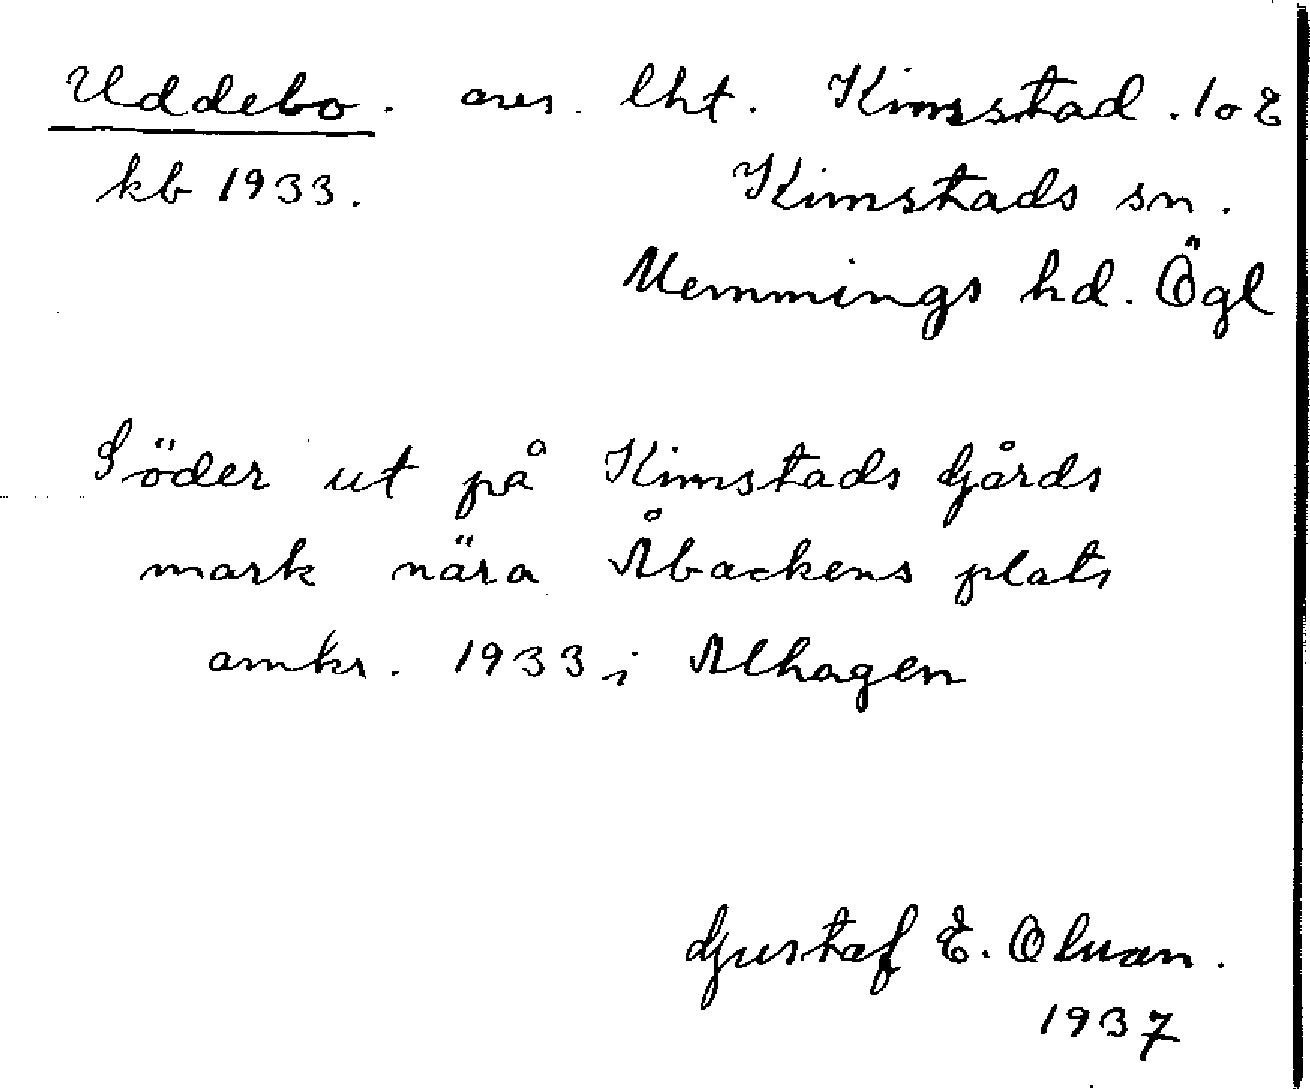 Uddebo. avs. lht. Kimstad. 1 o 2
kb 1933. Kimstads sn.
Memmings hd. Ögl
Söder ut på Kimstads Gårds
mark nära Åbackens plats
amkr. 1933 i Alhagen
Gustaf E. Olsson.
1937